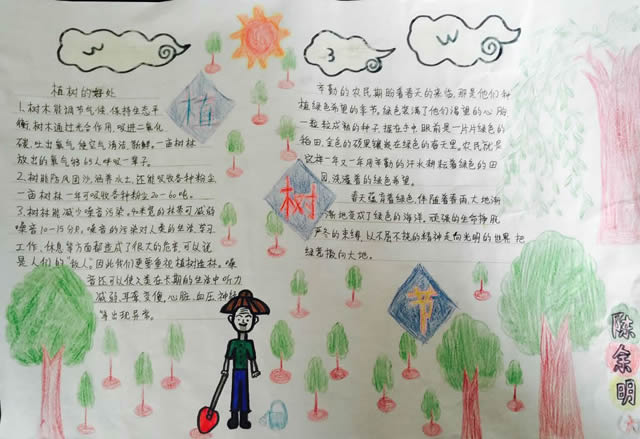 植树的好处
1.树木能调节气候,保持生态平
衡,树木通过光合作用,吸进二氧化
碳,吐出氧气,使空气清洁、新鲜。一亩树林
放出的氧气够65人呼吸一辈子。
2.树能防风固沙,涵养水土,还能吸收各种粉尘
一亩树林一年可吸收各种粉尘20—60吨。
3.树林能减少噪音污染。40米宽的林带可减弱
噪音10—15分贝。噪音的污染对人类的生活、学习
工作、休息等方面都造成了很大的危害,可以说
是人们的"敌人"。因此我们更要重视植树造林。噪
音还可以使人类在长期的生活中听力
减弱,耳聋变傻,心脏、血压、神经
等出现异常。
植
树
节
辛勤的农民期盼着春天的来临,那是他们种
植绿色希望的季节。绿色装满了他们渴望的心胸
一粒粒成熟的种子握在手中,眼前是一片片绿色的
稻田,金色的硕果镶嵌在绿色的春天里。农民就是
这样一年又一年用辛勤的汗水耕耘着绿色的田
园,浇灌着的绿色希望。
春天蕴育着绿色,伴随着春雨,大地渐
渐地变成了绿色的海洋。顽强的生命挣脱
严冬的束缚,以不屈不挠的精神走向光明的世界,把
绿意撒向大地。
陈余明